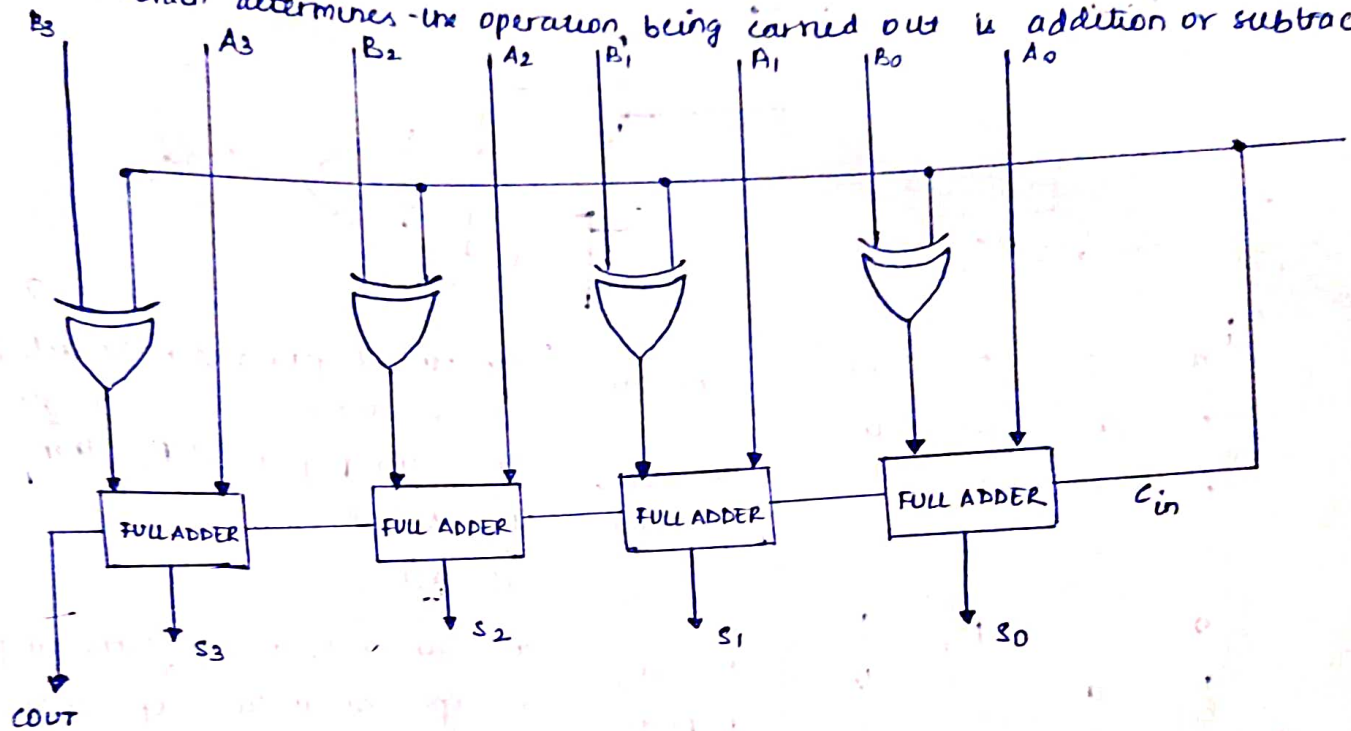 determines the operation, being carried out is addition or subtrac
B3 A3 B2 A2 B1 A1 B0 A0
FULL ADDER FULL ADDER FULL ADDER FULL ADDER Cin
S3 S2 S1 S0
COUT